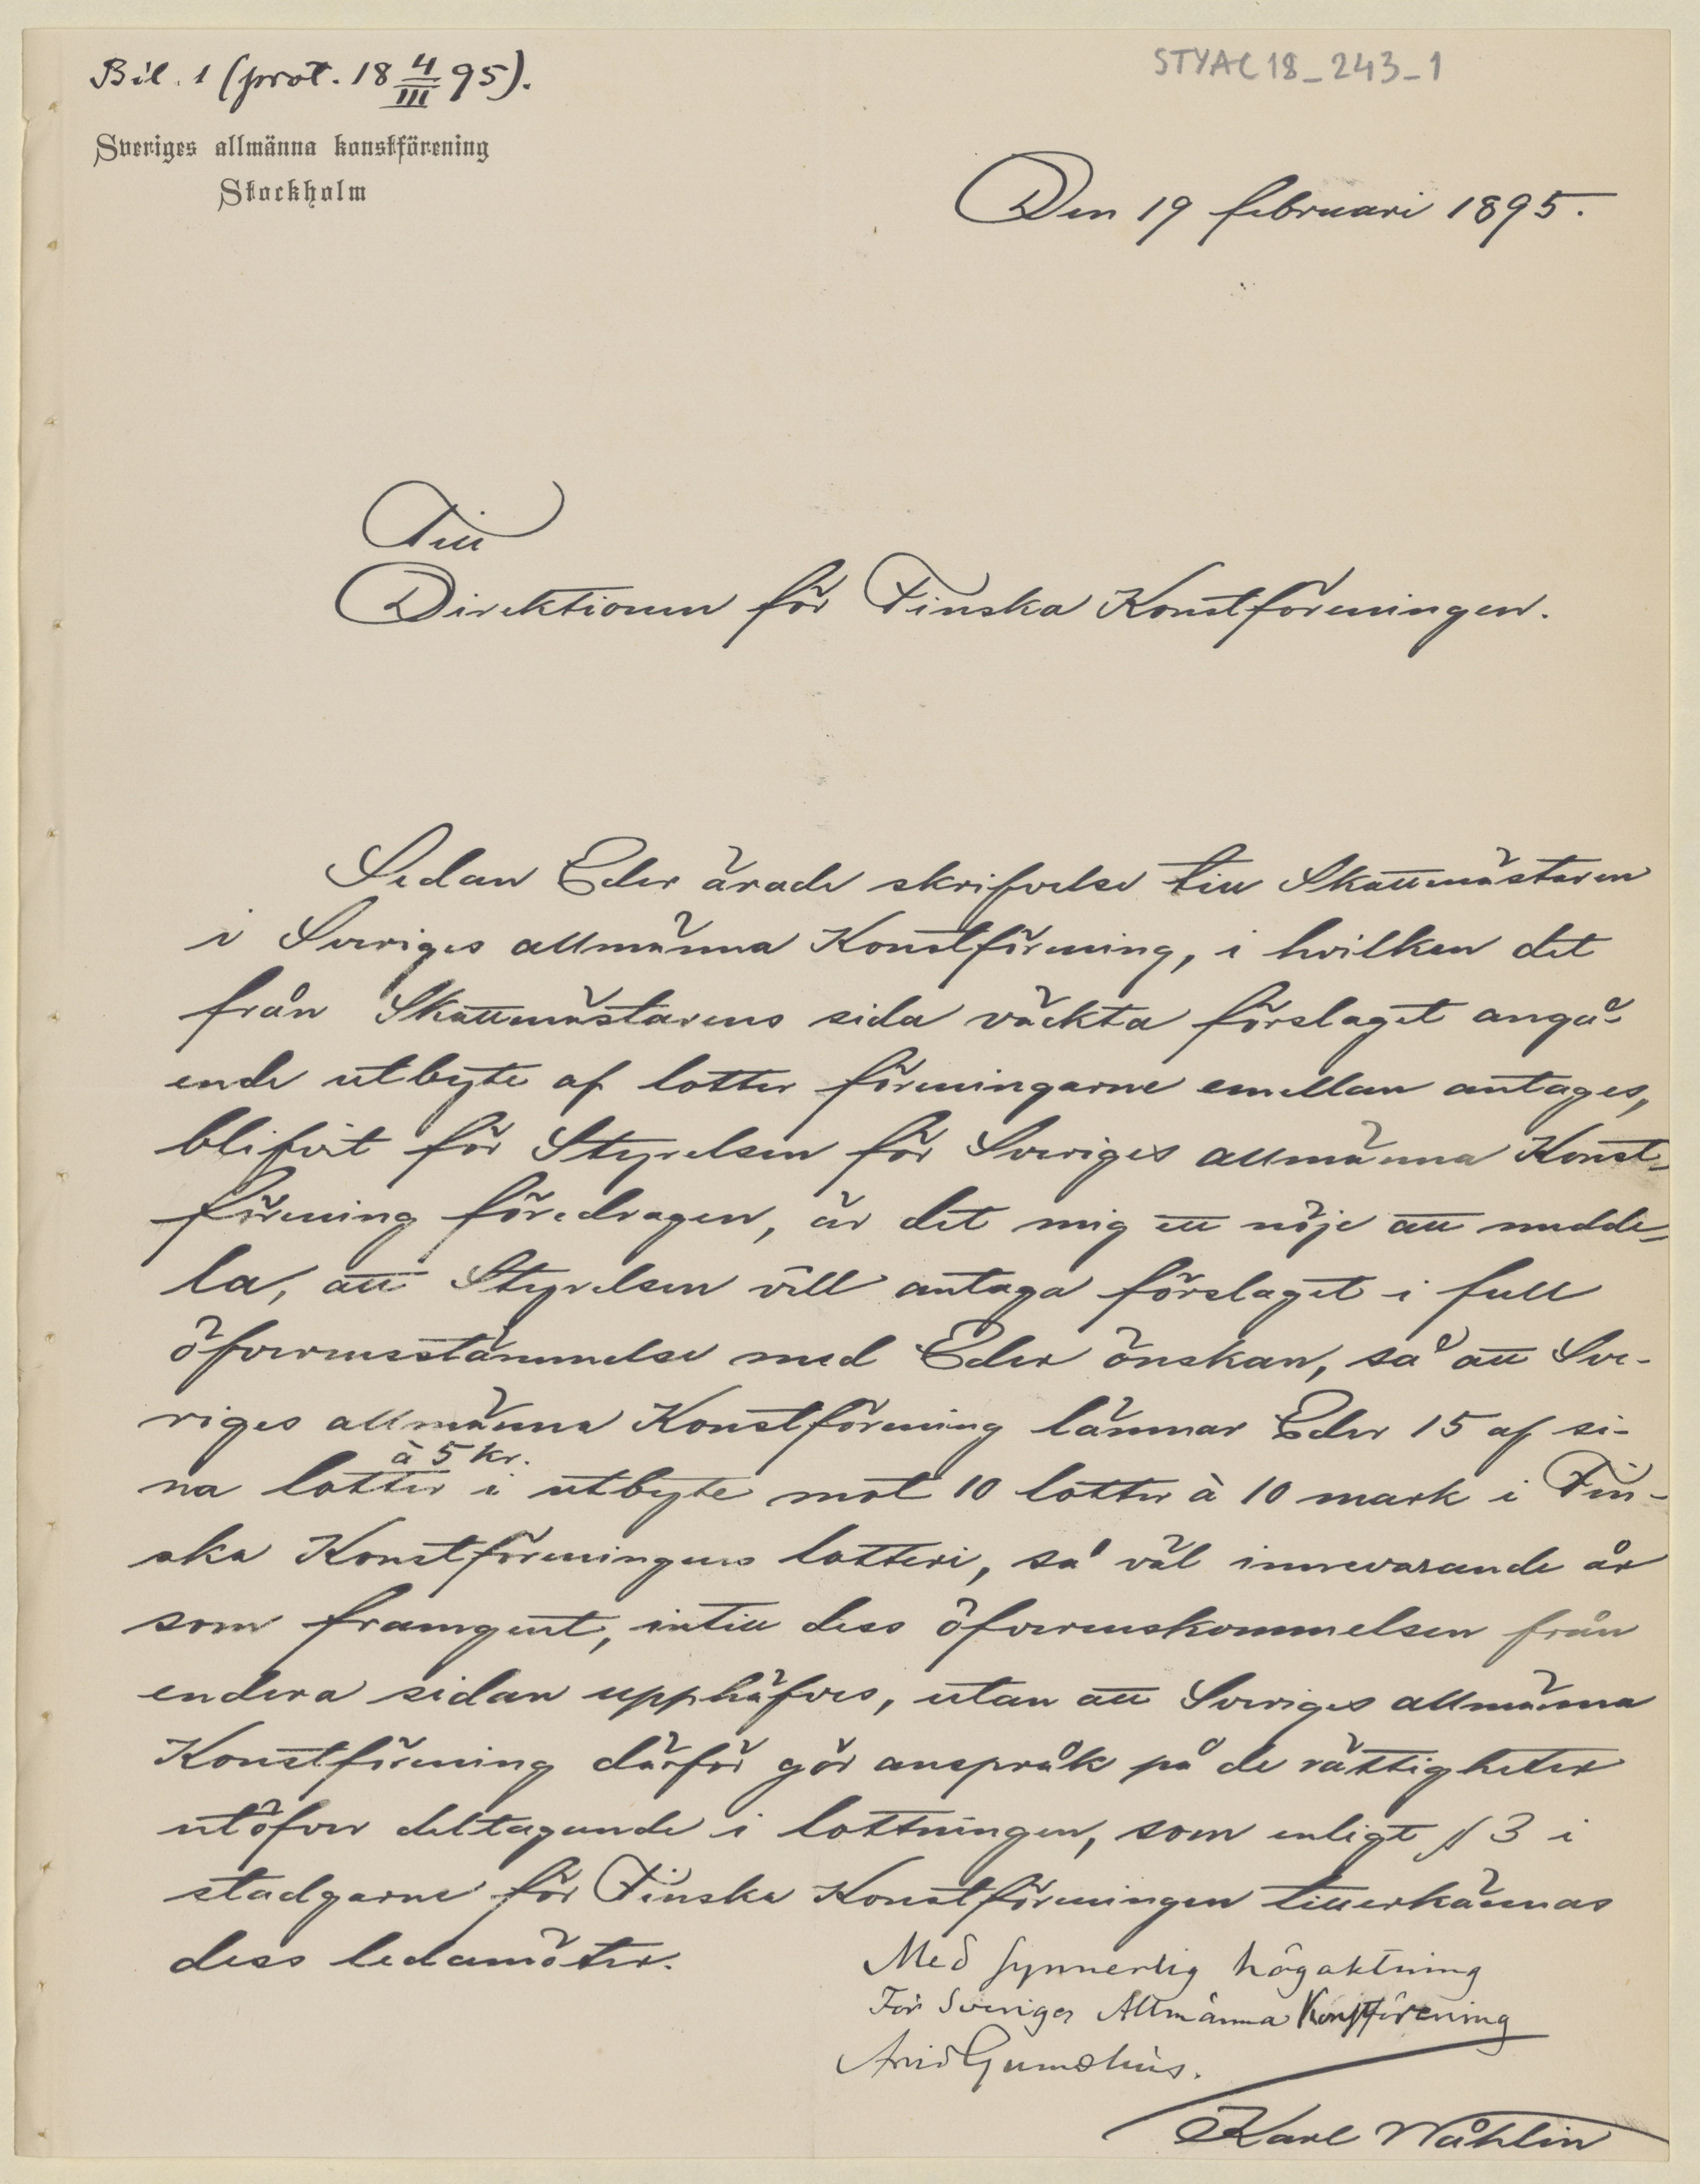 Bil. 1 (prot. 18 4/III 95).
STYAC18_243_1
Sveriges allmänna konstförening
Stockholm
Den 19 februari 1895.
Till
Direktionen för Finska Konstföreningen.
Sedan Eder ärade skrifvelse till Skattmästaren
i Sveriges allmänna Konstförening, i hvilken det
från Skattmästarens sida väckta förslaget angå-
ende utbyte af lotter föreningarne emellan antages,
blifvit för Styrelsen för Sveriges allmänna Konst-
förening föredragen, är det mig ett nöje att medde-
la, att Styrelsen vill antaga förslaget i full
öfverensstämmelse med Eder önskan, så att Sve-
riges allmänna Konstförening lämnar Eder 15 af si-
à 5 kr.
na lotter i utbyte mot 10 lotter à 10 mark i Fin-
ska Konstföreningens lotteri, så väl innevarande år
som framgent, intill dess öfverenskommelsen från
endera sidan upphäfves, utan att Sveriges allmänna
Konstförening därför gör anspråk på de rättigheter
utöfver deltagande i lottningen, som enligt § 3 i
stadgarne för Finska Konstföreningen tillerkännas
dess ledamöter.
Med synnerlig högaktning
För Sveriges Allmänna Konstförening
Arvid Gumælius.
Karl Wåhlin